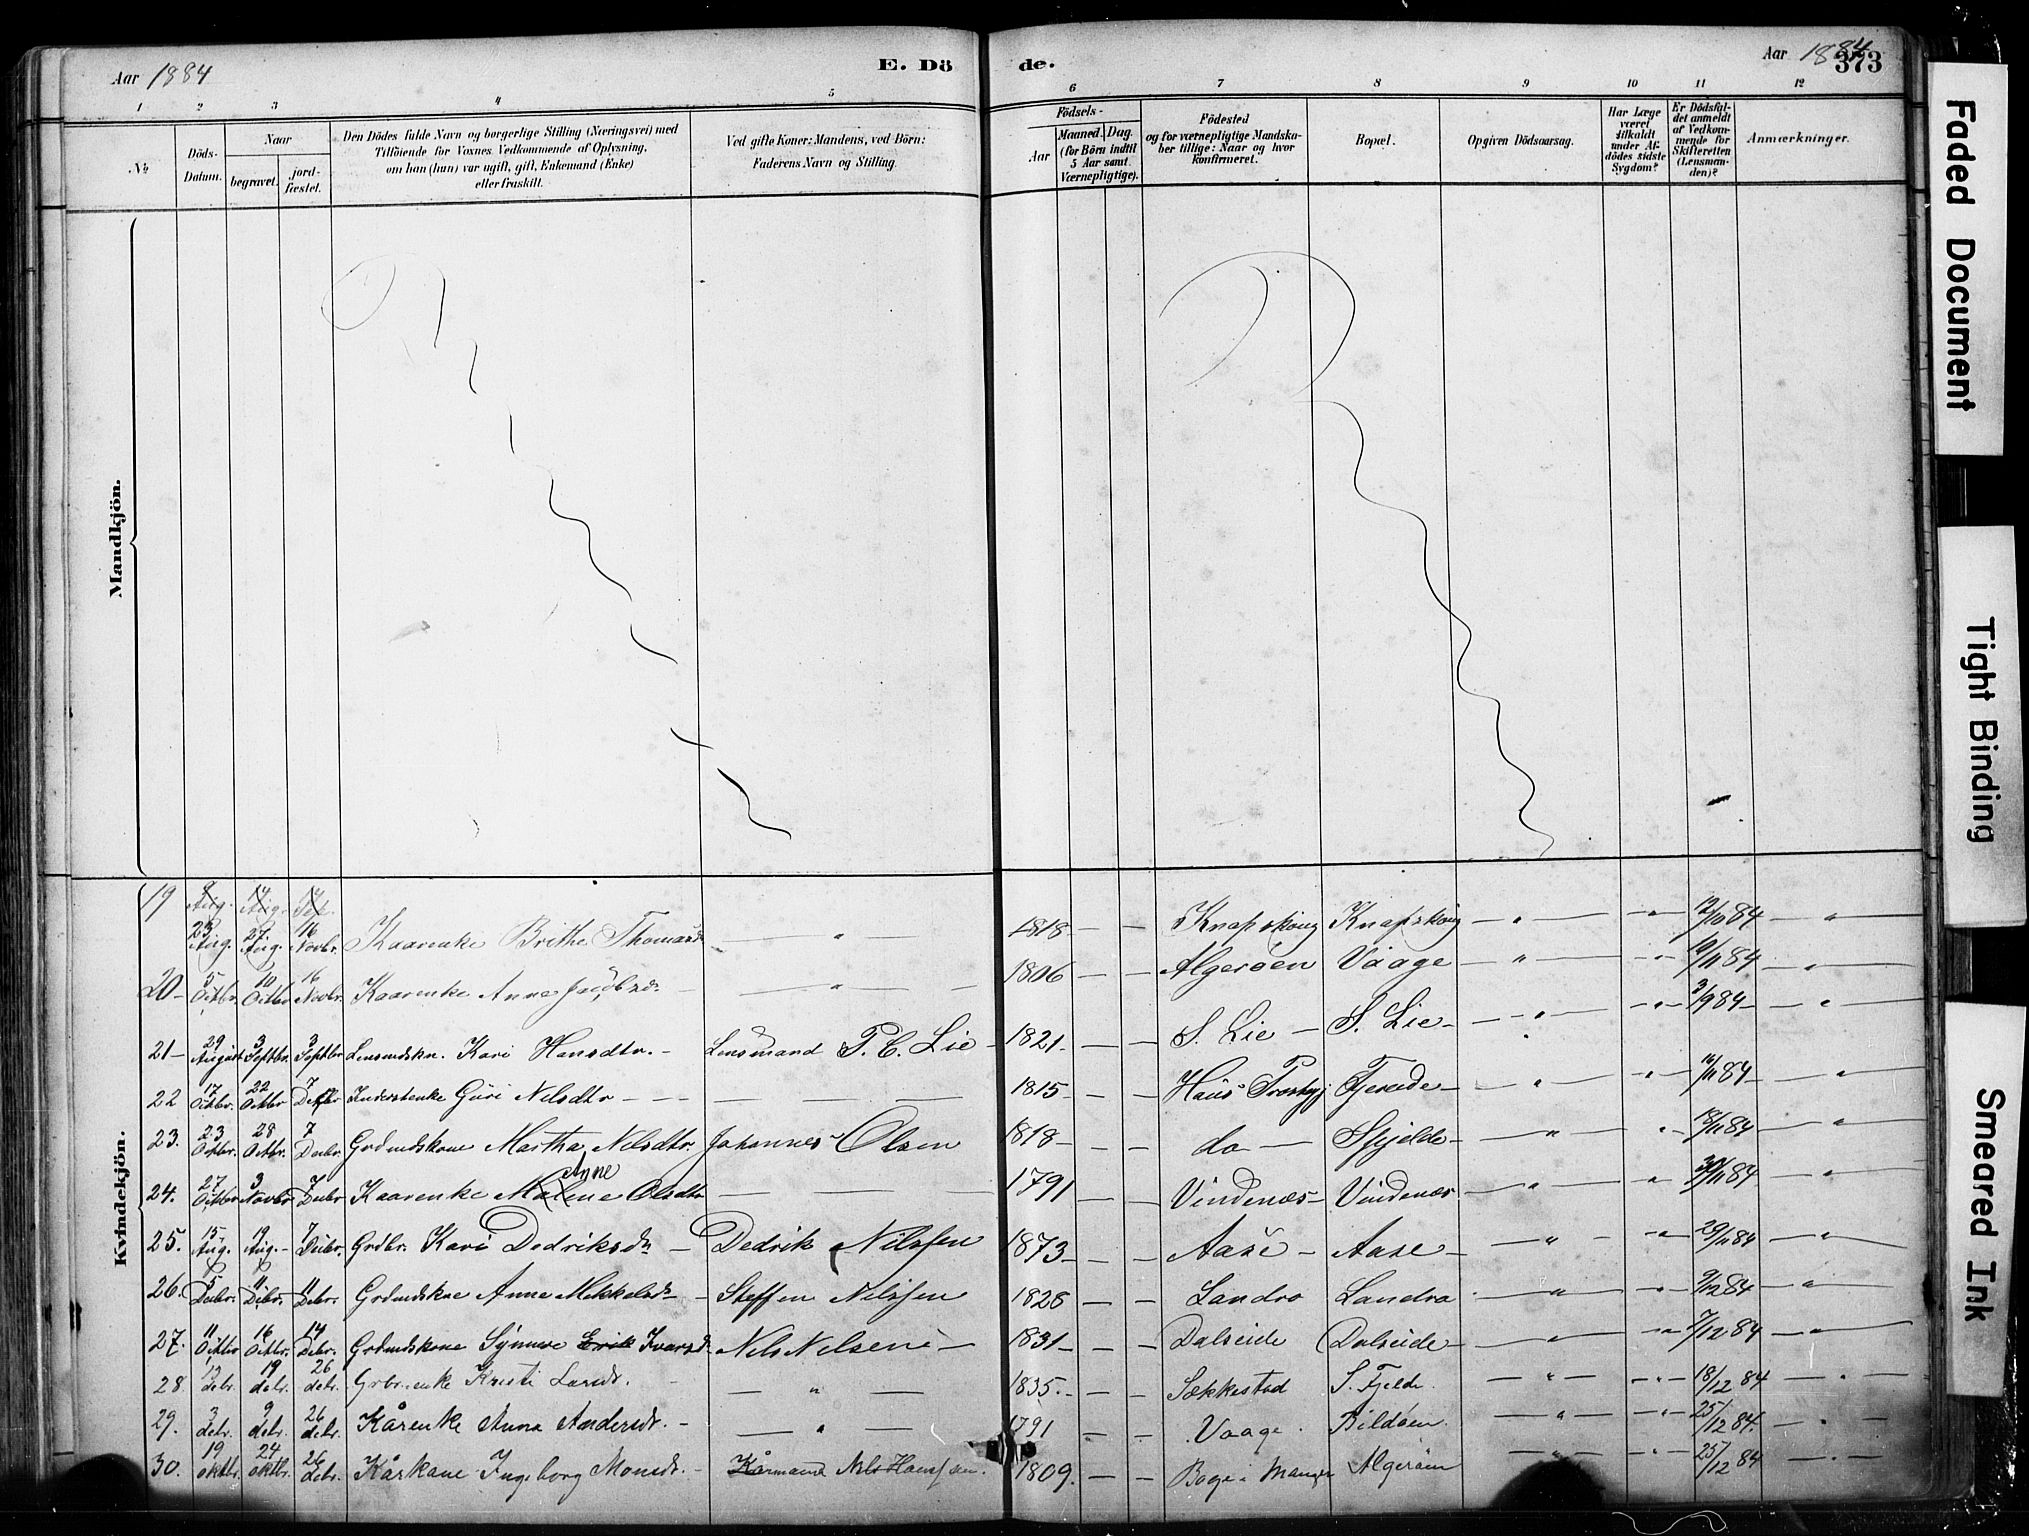 Aar 1884
E. Dö
de.
Aar 1884
373
1 2 3 4 5 6 7 8 9 10 11 12
№
Döds-
Datum.
Naar
begravet.
jord-
fæstet.
Den Dödes fulde Navn og borgerlige Stilling (Næringsvei) med
Tilföiende for Voxnes Vedkommende af Oplysning,
om han (hun) var ugift, gift, Enkemand (Enke)
eller fraskilt.
Ved gifte Koner: Mandens, ved Börn:
Faderens Navn og Stilling.
Födsels-
Aar
Maaned. Dag.
(for Börn indtil
5 Aar samt
Værnepligtige).
Födested
og for værnepligtige Mandska-
ber tillige: Naar og hvor
konfirmeret.
Bopæl.
Opgiven Dödsaarsag.
Har Læge
været
tilkaldt
under Af-
dödes sidste
Sygdom?
Er Dödsfal-
det anmeldt
af Vedkom-
mende for
Skifteretten
(Lensman-
den)?
Anmærkninger.
Mandkjön.
Kvindekjön.
19 23 Aug. 27 Aug. 16 Novbr. Kaarenke Brithe Thomasd — " 1818 — — Knapskoug Knapskoug — " — 12/11 84 — " —
20 — 5 Octbr. 10 Octbr 16 Novbr. Kaarenke Anne — " — 1806 — — Algeröen Vaage — " — 84 — " —
21 — 29 August 3 Septbr. 3 Septbr Lensmdskn. Kari Hansdtr. — Lensmand P. C. Lie — 1821 — — S. Lie — S. Lie — " — 3/9 84 — " —
22 17 Octbr. 22 Octbr 7 Decbr Inderstenke Guri Nilsdtr — — — 1815 — — Haus Præstegj Fjereide — " — 84 — " —
23. 23 Octbr. 28 Octbr. 7 Decbr. Grdmdskone Martha Nilsdtr. Johannes Olsen 1818 — — do — Spjelde — " — 84 — " —
24. 27 Octbr 3 Novbr 7 Decbr Kaarenke Malene Anne Olsdtr — — 1791 — — Vindenæs — Vindenæs — " — 84 — " —
25. 15 Aug. 19 Aug. — 7 Decbr. Grdbr. Kari Dedriksdr — Dedrik Nilssen 1873 — — Aase — Aase — " — 29/11 84 — " —
26. 5 Decbr. 11 Decbr. 11 Decbr. Grdmdskne Anne Mikkelsdr — Steffen Nilssen 1828 — — Landro Landro — " — 9/12 84 — " —
27. 11 Octbr 16 Octbr. 14 Decbr. Grdmdskone Synneve Erik Ivarsd. Nils Nilsen — 1831 — — Dalseide Dalseide — " — 7/12 84 — " —
28. 13 debr. 19 debr. 26 debr. Grbr.enke Kristi Larsdr. — — " — 1835. — — Sækkestad S. Fjelde. — " — 18/12 84 — " —
29. 3 debr. 9 debr. 26 debr. Kårenke Anna Andersdr. — — " — 1791 — — Vaage. Bildöen. — " — 25/12 84. — " —
30. 19 oktbr. 24 oktbr. 26 debr. Kårkone Ingeborg Monsdr. — Kårmand Nils Hanssen. 1809. — — Bage i Manger Algeröen — " — 25/12 84 — " —
Faded Document
Tight Binding
Smeared Ink